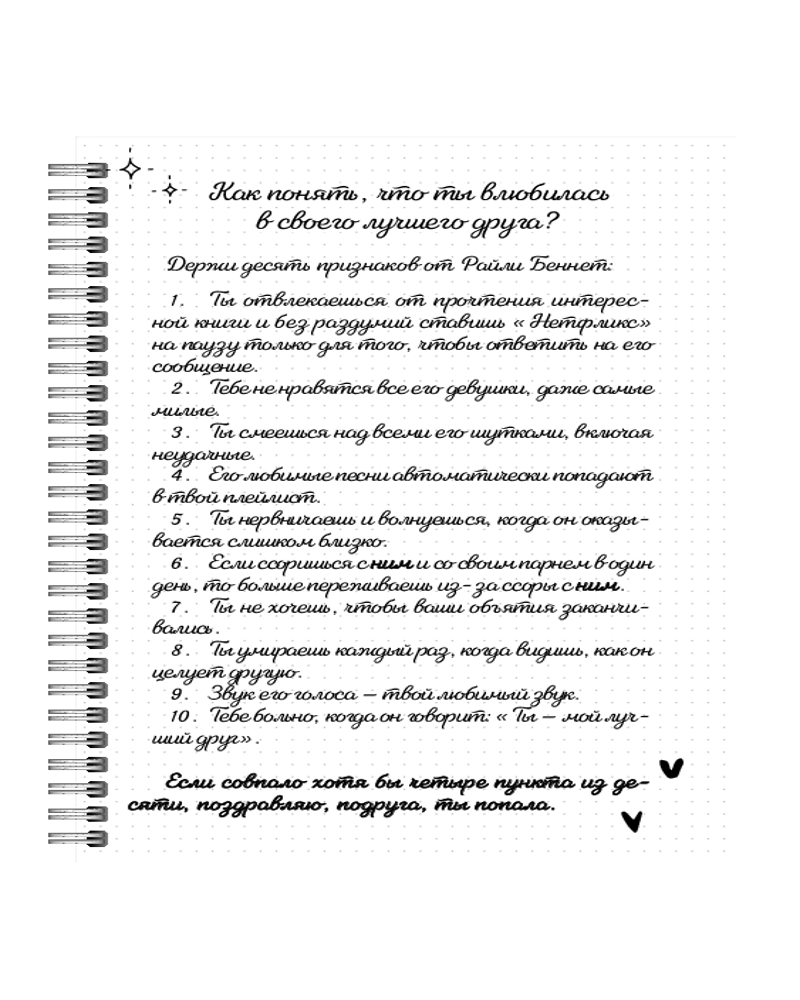 Как понять, что ты влюбилась
в своего лучшего друга?
Держи десять признаков от Райли Беннет:
1. Ты отвлекаешься от прочтения интерес-
ной книги и без раздумий ставишь «Нетфликс»
на паузу только для того, чтобы ответить на его
сообщение.
2. Тебе не нравятся все его девушки, даже самые
милые.
3. Ты смеешься над всеми его шутками, включая
неудачные.
4. Его любимые песни автоматически попадают
в твой плейлист.
5. Ты нервничаешь и волнуешься, когда он оказы-
вается слишком близко.
6. Если ссоришься с ним и со своим парнем в один
день, то больше переживаешь из-за ссоры с ним.
7. Ты не хочешь, чтобы ваши объятия заканчи-
вались.
8. Ты умираешь каждый раз, когда видишь, как он
целует другую.
9. Звук его голоса — твой любимый звук.
10. Тебе больно, когда он говорит: «Ты — мой луч-
ший друг».
Если совпало хотя бы четыре пункта из де-
сяти, поздравляю, подруга, ты попала.